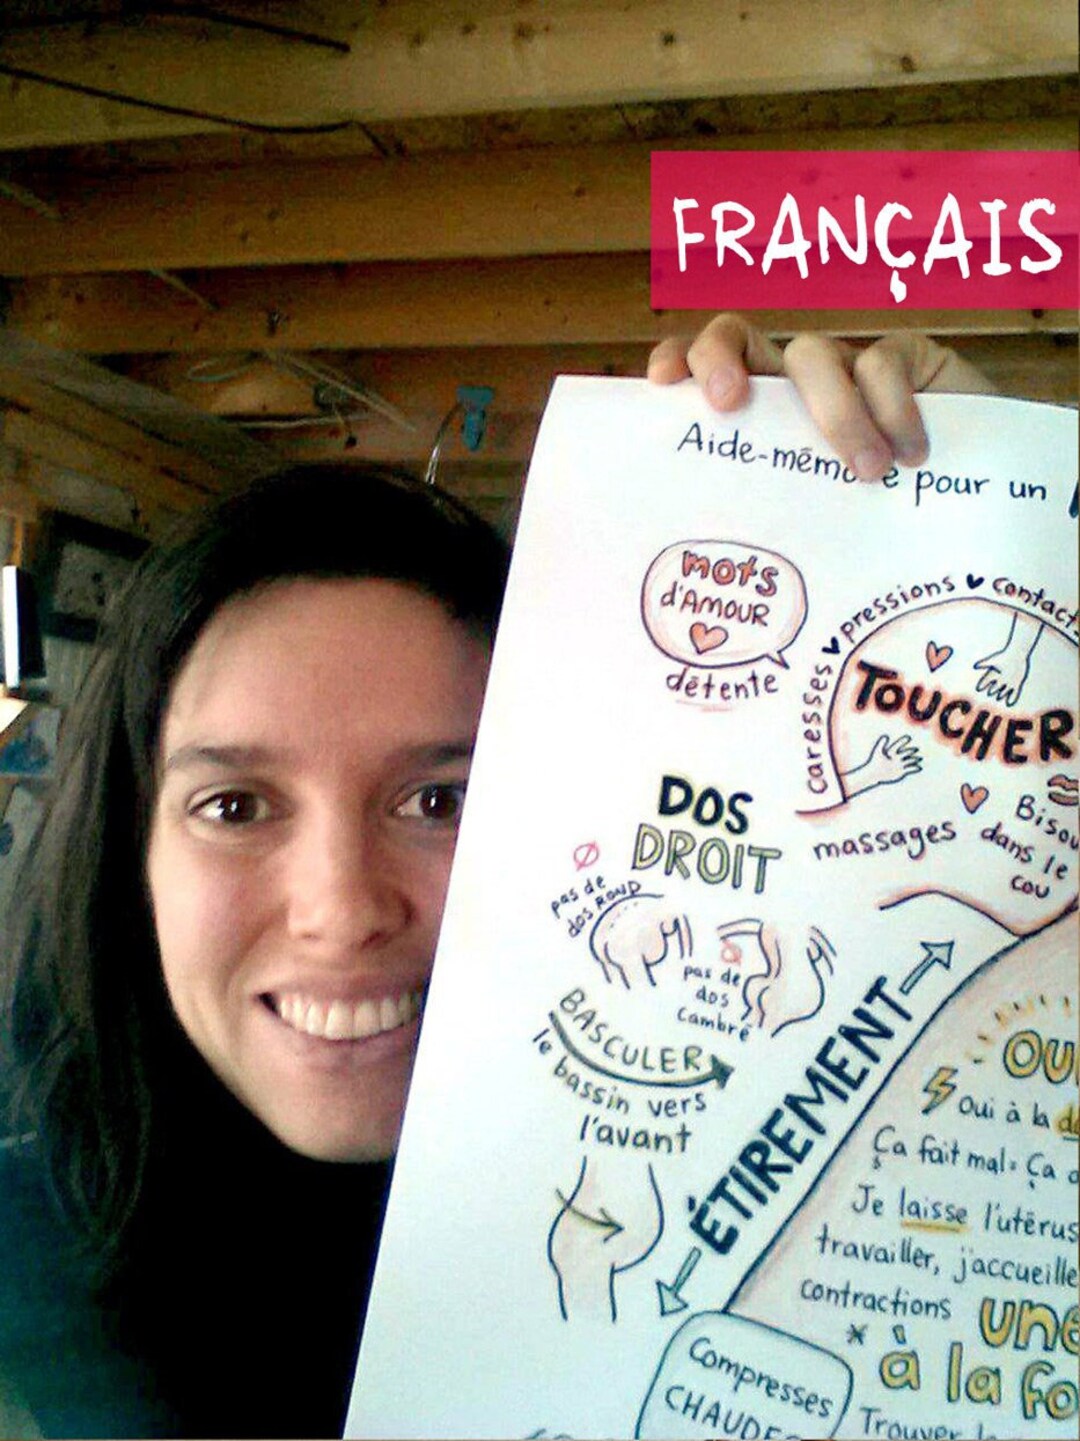 FRANÇAIS
Aide-mémo e pour un
mots
d'AMOUR
détente
caresses ♥ pressions ♥ contact
TOUCHER
Bisou
dans le
cou
massages
DOS
DROIT
pas de
dos ROND
pas de
dos
cambré
BASCULER
le bassin vers
l'avant
ÉTIREMENT
OUI
Oui à la
Ça fait mal = Ça
Je laisse l'utérus
travailler, j'accueille
contractions une
à la fo
Compresses
CHAUDES
Trouver